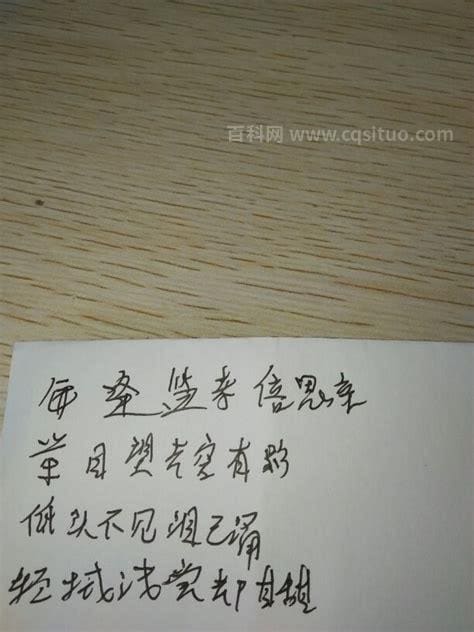 百科网 www.cqsituo.com
每逢 倍思亲
举目望去空有影
低头不见泪已涌
轻拭浅尝却自甜